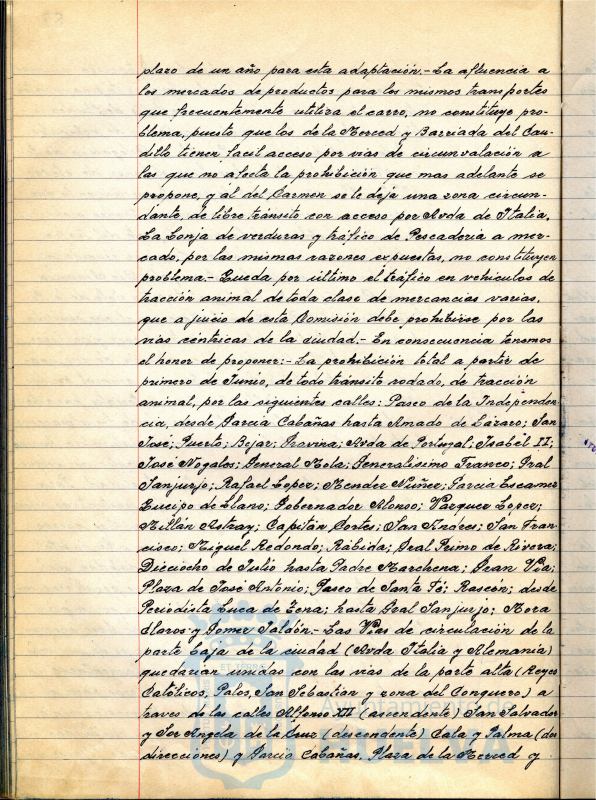 plazo de un año para esta adaptación.- La afluencia a
los mercados de productos para los mismos transportes
que frecuentemente utiliza el carro, no constituye pro-
blema, puesto que los de la Merced y Barriada del Cau-
dillo tienen facil acceso por vias de circunvalación a
las que no afecta la prohibición que mas adelante se
propone, y al del Carmen se le deja una zona circun-
dante, de libre tránsito con acceso por Avda de Italia.
La Lonja de verduras y tráfico de Pescaderia a mer-
cado, por las mismas razones expuestas, no constituyen
problema.- Queda por último el tráfico en vehiculos de
tracción animal de toda clase de mercancias varias,
que a juicio de esta Comisión debe prohibirse por las
vias céntricas de la ciudad.- En consecuencia tenemos
el honor de proponer:- La prohibición total a partir de
primero de Junio, de todo tránsito rodado, de tracción
animal, por las siguientes calles: Paseo de la Independen-
cia, desde Garcia Cabañas hasta Amado de Lázaro; San
José; Puerto; Bejar; Gravina; Avda de Portugal; Isabel II;
José Nogales; General Mola; Generalisimo Franco; Gral
Sanjurjo; Rafael Lopez; Mendez Nuñez; Garcia
Queipo de Llano; Gobernador Alonso; Vazquez Lopez;
Millán Astray; Capitán Cortes; San Andres; San Fran-
cisco; Miguel Redondo; Rábida; Gral Primo de Rivera;
Dieciocho de Julio hasta Padre Marchena; Gran Via;
Plaza de José Antonio; Paseo de Santa Fé; Rascón; desde
Periodista Luca de Tena; hasta Gral Sanjurjo; Mora
Claros y Gomez Jaldón.- Las Vias de circulación de la
parte baja de la ciudad (Avda Italia y Alemania)
quedarian unidas con las vias de la parte alta (Reyes
Católicos, Palos, San Sebastian y zona del Conquero) a
traves de las calles Alfonso XII (ascendente) San Salvador
y Sor Angela de la Cruz (descendente) Cala y Palma (dos
direcciones) y Garcia Cabañas, Plaza de la Merced y
Ayuntamiento de
HUELVA